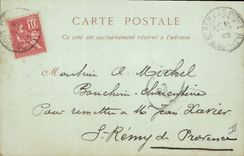 CARTE POSTALE
Ce côté est exclusivement réservé à l'adresse
10
Monsieur A. Michel
Boucherie-Charcuterie
Pour remettre à Mr Jean Xavier
St Rémy de Provence